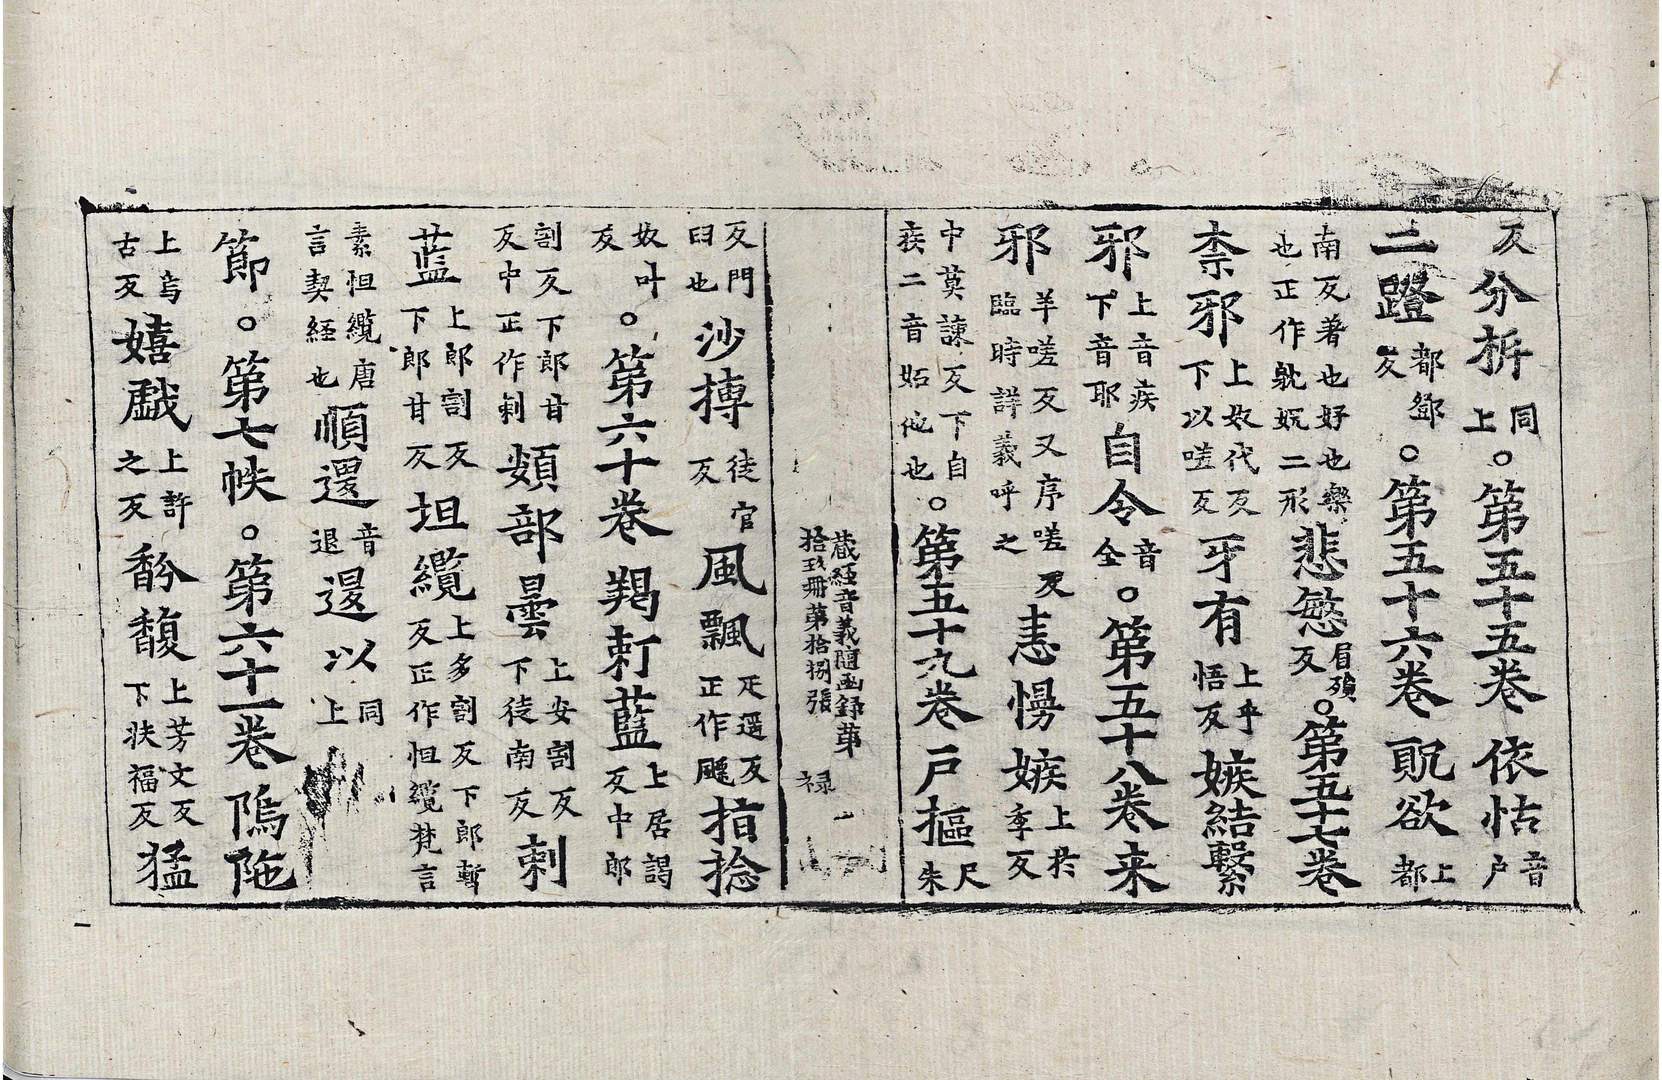 反分析同上。第五十五卷依怙音户
二蹬都鄧反。第五十六卷躭欲上都
南反著也好也樂也正作躭妉二形悲慜眉殞反。第五十七卷
柰邪上奴代反下以嗟反牙有上乎悟反嫉結繫
邪上音疾下音耶自令音全。第五十八卷来
邪羊嗟反又序嗟反臨時詳義呼之恚慢嫉上於季反
中莫諫反下自疾二音妬他也。第五十九卷戸摳尺朱
藏經音義隨函録第
拾玖冊第拾捌張 禄
反門臼也沙摶徒官反風飄疋遥反正作飈指捻
奴叶反。第六十卷羯剌藍上居謁反中郎
割反下郎甘反中正作剌頞部曇上安割反下徒南反剌
藍上郎割反下郎甘反坦纜上多割反下郎暫反正作怛纜梵言
素怛纜唐言契経也順還音退還以上同
節。第七帙。第六十一卷隖陁
上烏古反嬉戱上許之反馚馥上芳文反下扶福反猛